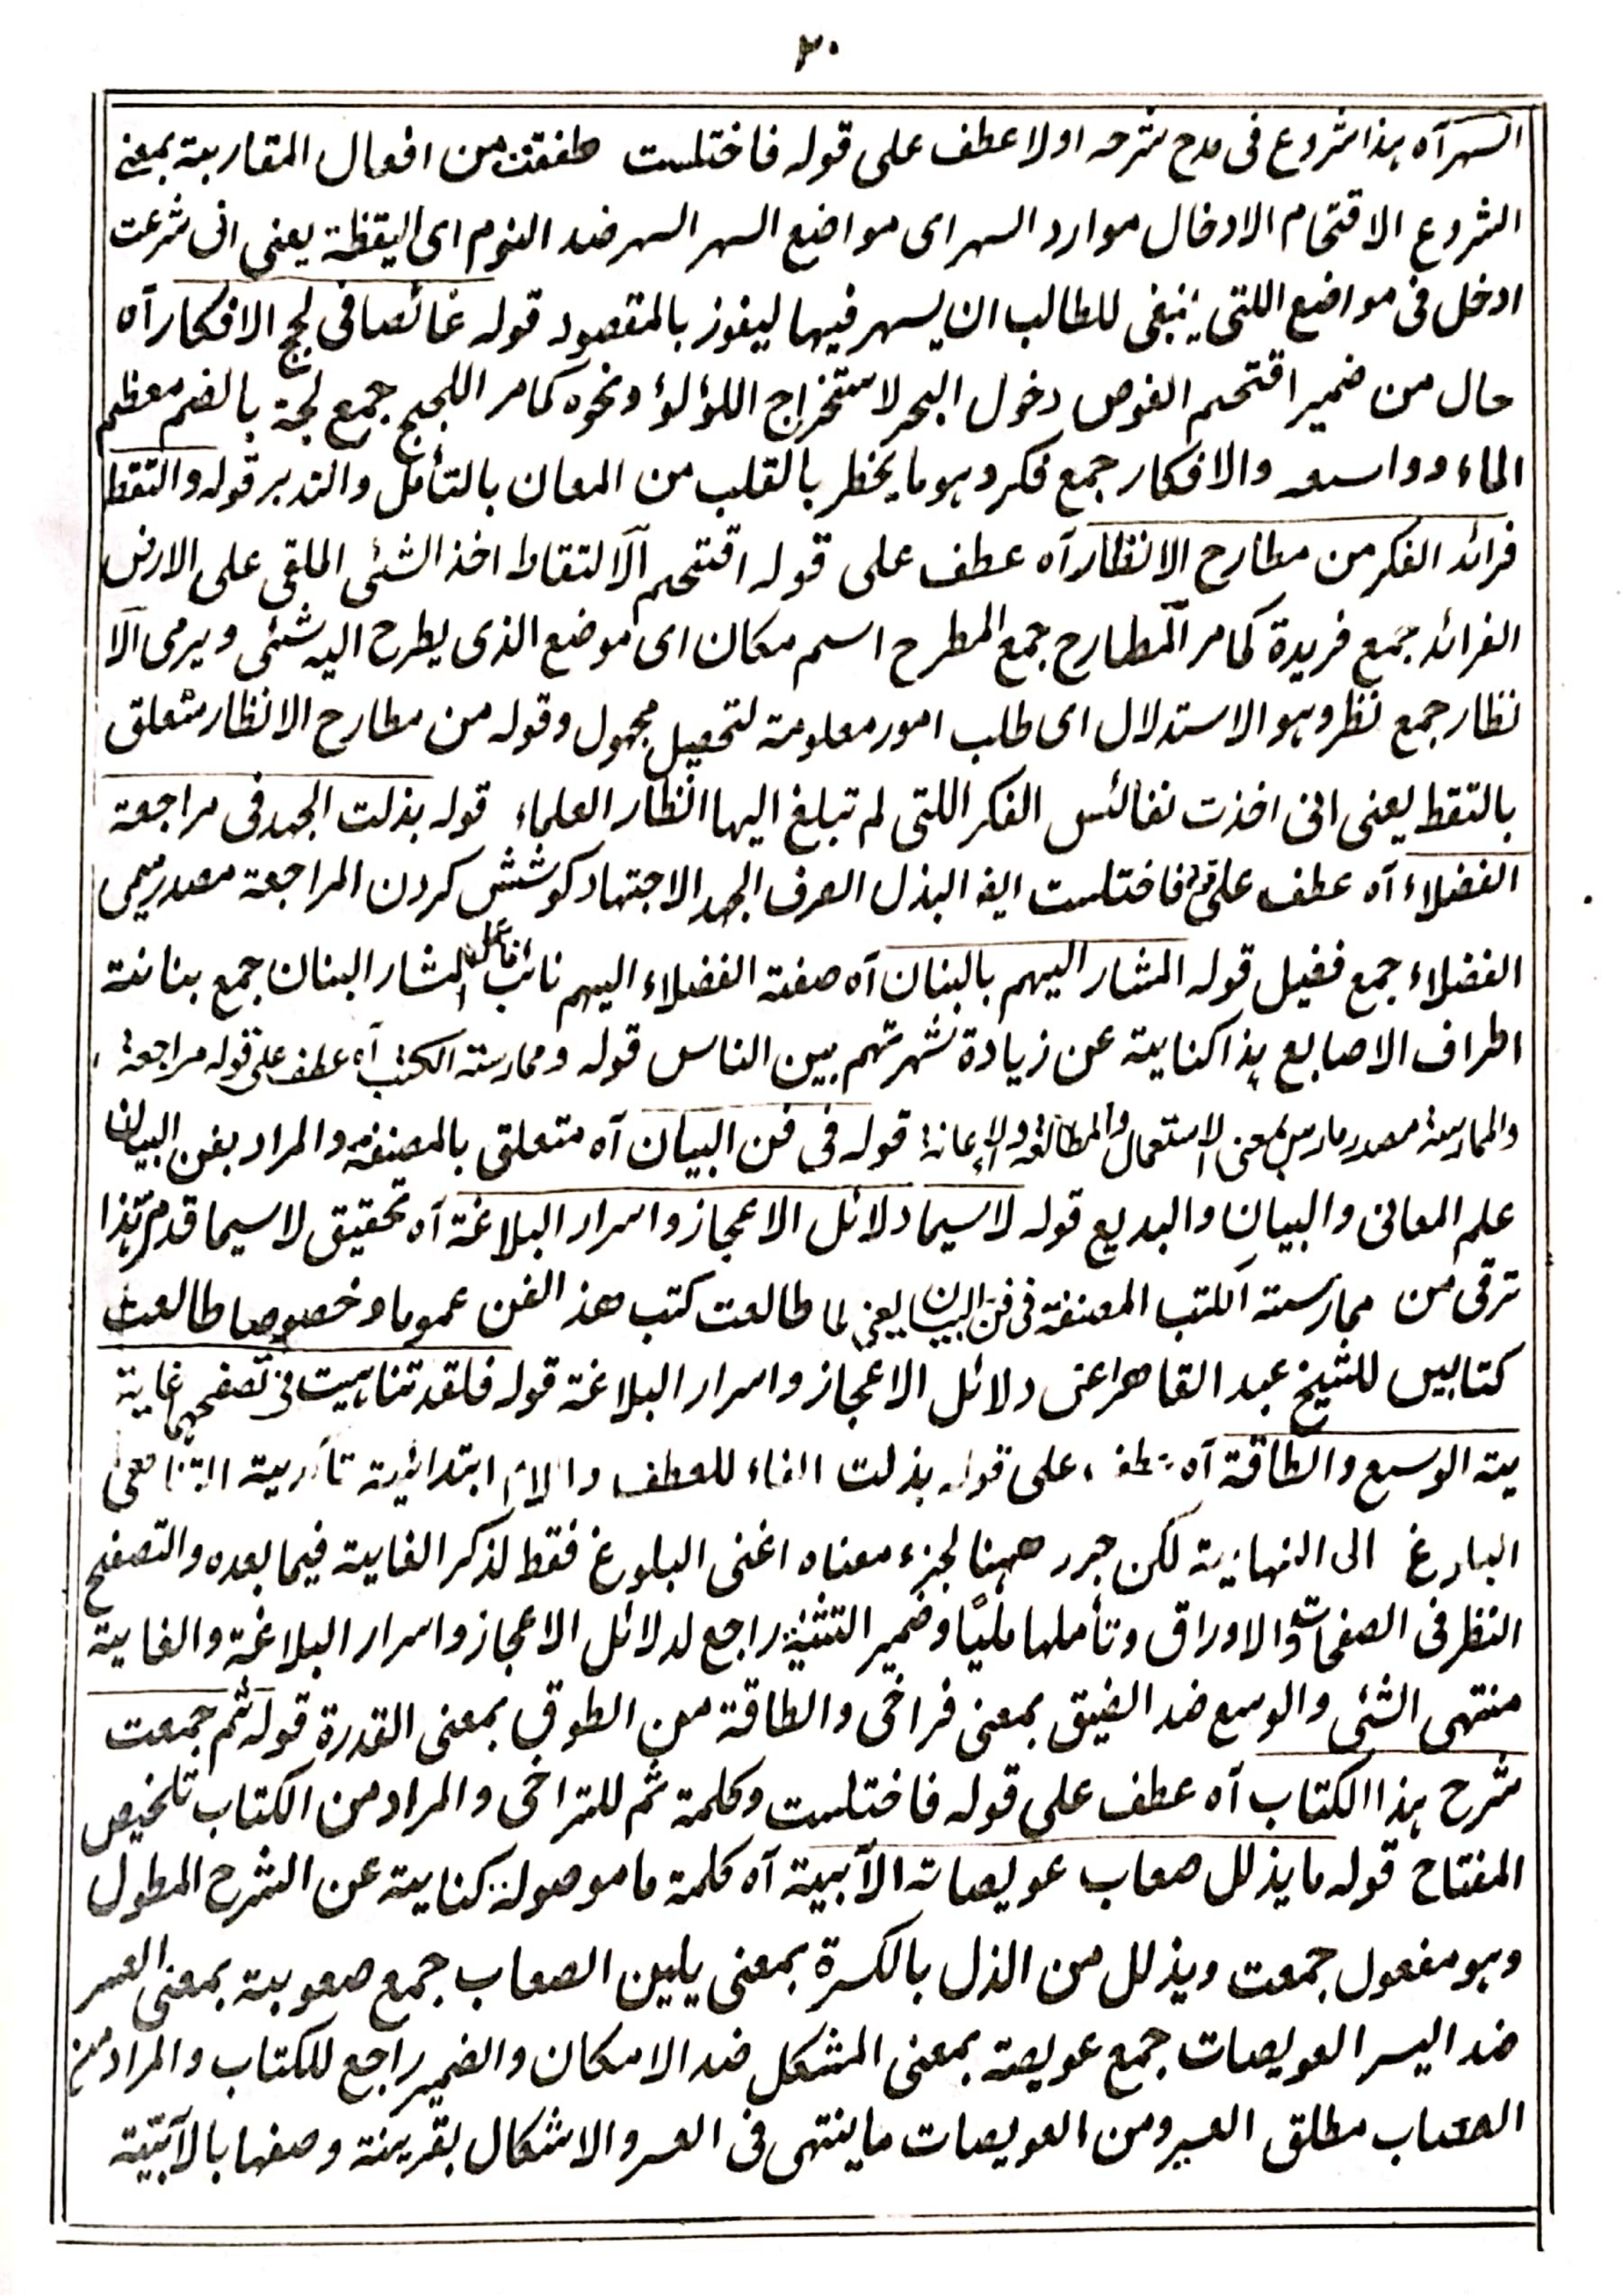 ٢٠
السهر آه هذا شروع فى مدح شرحه اولا عطف على قوله فاختلست طفقت من افعال المقاربة بمعنى
الشروع الاقتحام الادخال موارد السهر اى مواضع السهر السهر ضد النوم اى اليقظة يعنى انى شرعت
ادخل فى مواضع اللتى ينبغى للطالب ان يسهر فيها ليفوز بالمقصود قوله غائصا فى لجج الافكار آه
حال من ضمير اقتحم الغوص دخول البحر لاستخراج اللؤلؤ ونحوه كما مر اللجج جمع لجة بالضم معظم
الماء وواسعه والافكار جمع فكر وهو ما يخطر بالقلب من المعان بالتأمل والتدبر قوله والتقط
فرائد الفكر من مطارح الانظار آه عطف على قوله اقتحم الالتقاط اخذ الشئى الملقى على الارض
الفرائد جمع فريدة كما مر المطارح جمع المطرح اسم مكان اى موضع الذى يطرح اليه شئى ويرمى الا
نظار جمع نظر وهو الاستدلال اى طلب امور معلومة لتحصيل مجهول وقوله من مطارح الانظار متعلق
بالتقط يعنى انى اخذت نفائس الفكر اللتى لم تبلغ اليها انظار العلماء قوله بذلت الجهد فى مراجعة
الفضلاء آه عطف على قوله فاختلست ايضا البذل الصرف الجهد الاجتهاد كوشش كردن المراجعة مصدر ميمى
الفضلاء جمع فضيل قوله المشار اليهم بالبنان آه صفة الفضلاء اليهم نائب فاعل المشار البنان جمع بنانة
اطراف الاصابع هذا كناية عن زيادة شهرتهم بين الناس قوله وممارسة الكتب آه عطف على قوله مراجعة
والممارسة مصدر مارس بمعنى الاستعمال والمطالعة والاعانة قوله فى فن البيان آه متعلق بالمصنفة والمراد بفن البيان
علم المعانى والبيان والبديع قوله لاسيما دلائل الاعجاز واسرار البلاغة آه تحقيق لاسيما قد مر هذا
ترقى من ممارسة الكتب المصنفة فى فن البيان يعنى لما طالعت كتب هذ الفن عموما وخصوصا طالعت
كتابين للشيخ عبد القاهر اعنى دلائل الاعجاز واسرار البلاغة قوله فلقد تناهيت فى تصفحهما غاية
ية الوسع والطاقة آه عطف على قوله بذلت الفاء للعطف واللام ابتدائية تأديية التناهى
البلوغ الى النهاية لكن جرد ههنا لجزء معناه اغنى البلوغ فقط لذكر الغاية فيما بعده والتصفح
النظر فى الصفحات والاوراق وتأملها مليًا وضمير التثنية راجع لدلائل الاعجاز واسرار البلاغة والغاية
منتهى الشئى والوسع ضد الضيق بمعنى فراخى والطاقة من الطوق بمعنى القدرة قوله ثم جمعت
شرح هذا الكتاب آه عطف على قوله فاختلست وكلمة ثم للتراخى والمراد من الكتاب تلخيص
المفتاح قوله ما يذلل صعاب عويصاته الآبية آه كلمة ما موصولة كناية عن الشرح المطول
وهو مفعول جمعت ويذلل من الذل بالكسرة بمعنى يلين الصعاب جمع صعوبة بمعنى العسر
ضد اليسر العويصات جمع عويصة بمعنى المشكل ضد الامكان والضمير راجع للكتاب والمراد من
الصعاب مطلق العسير ومن العويصات ما ينتهى فى العسر والاشكال بقرينة وصفها بالآبية